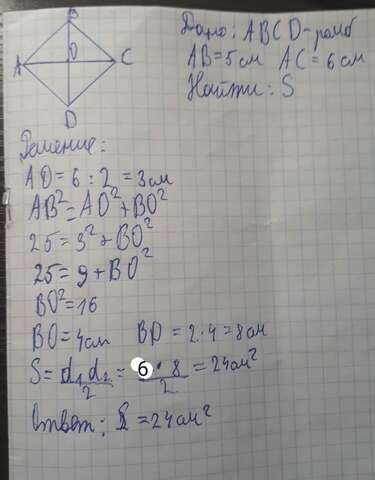 B
A O C
D
Дано: ABCD - ромб
AB = 5 см AC = 6 см
Найти: S
Решение:
AO = 6 : 2 = 3 см
AB² = AO² + BO²
25 = 3² + BO²
25 = 9 + BO²
BO² = 16
BO = 4 см BD = 2 · 4 = 8 см
S = d₁ d₂ / 2 = 6 · 8 / 2 = 24 см²
Ответ: S = 24 см²